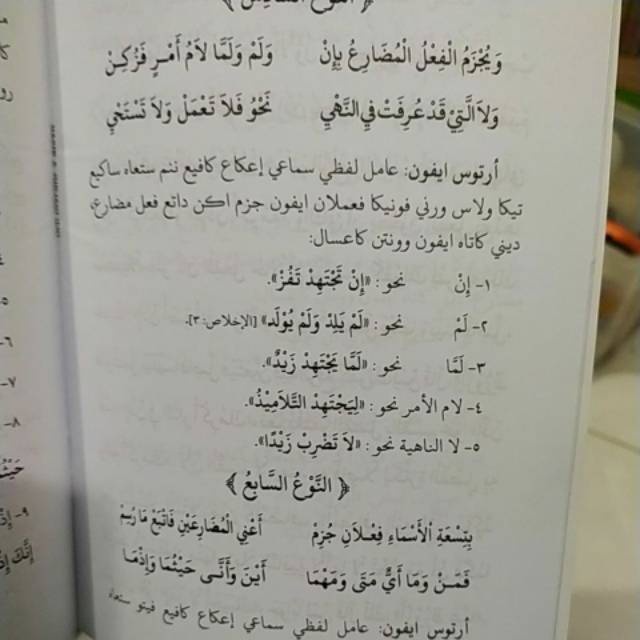 ﴿ النَّوْعُ السَّادِسُ ﴾
وَيُجْزَمُ الْفِعْلُ الْمُضَارِعُ بِإِنْ وَلَمْ وَلَمَّا لاَمُ أَمْرٍ فَزْكِنْ
وَلاَ الَّتِيْ قَدْ عُرِفَتْ فِي النَّهْيِ نَحْوُ فَلاَ تَعْمَلْ وَلاَ تَسْتَحْيِ
أرتوس ايفون: عامل لفظي سماعي إعكاع كافيع ننم ستعاه ساكيع
تيكا ولاس ورني فونيكا فعملان ايفون جزم اكن داتع فعل مضارع،
ديني كاتاه ايفون وونتن كاعسال:
١- إِنْ نحو: «إِنْ تَجْتَهِدْ تَفُزْ».
٢- لَمْ نحو: «لَمْ يَلِدْ وَلَمْ يُوْلَدْ» [الإخلاص: ٣].
٣- لَمَّا نحو: «لَمَّا يَجْتَهِدْ زَيْدٌ».
٤- لام الأمر نحو: «لِيَجْتَهِدْ التَّلاَمِيْذُ».
٥- لا الناهية نحو: «لاَ تَضْرِبْ زَيْدًا».
﴿ النَّوْعُ السَّابِعُ ﴾
بِتِسْعَةِ اْلأَسْمَاءِ فِعْلاَنِ جُزِمْ أَعْنِي الْمُضَارِعَيْنِ فَاتَّبِعْ مَا رُسِمْ
فَمَنْ وَمَا أَيُّ مَتَى وَمَهْمَا أَيْنَ وَأَنَّى حَيْثُمَا وَإِذْمَا
أرتوس ايفون: عامل لفظي سماعي إعكاع كافيع فيتو ستعاه